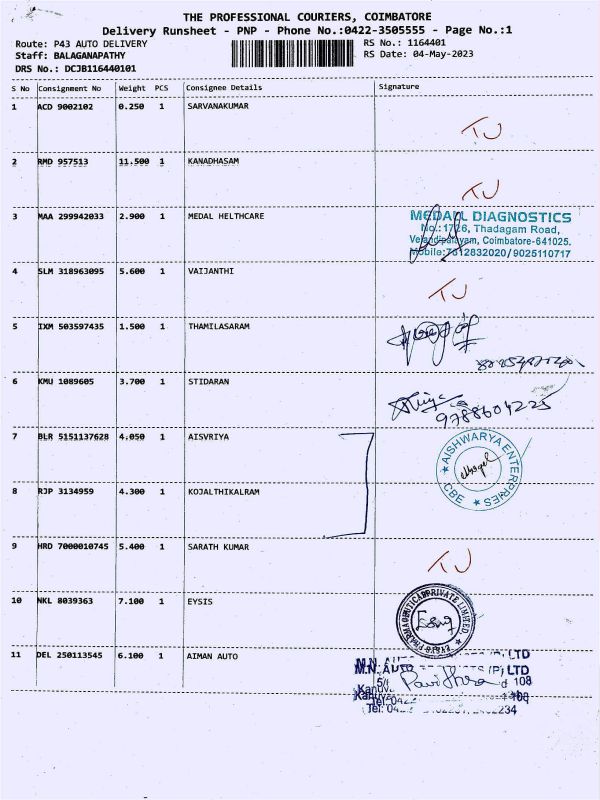 THE PROFESSIONAL COURIERS, COIMBATORE
Delivery Runsheet - PNP - Phone No.:0422-3505555 - Page No.:1
Route: P43 AUTO DELIVERY
RS No.: 1164401
Staff: BALAGANAPATHY
RS Date: 04-May-2023
DRS No.: DCJB116440101
S No Consignment No Weight PCS Consignee Details Signature
1 ACD 9002102 0.250 1 SARVANAKUMAR
TJ
2 RMD 957513 11.500 1 KANADHASAM
TJ
3 MAA 299942033 2.900 1 MEDAL HELTHCARE
MEDALL DIAGNOSTICS
No.: 1726, Thadagam Road,
Velandipalayam, Coimbatore-641025.
Mobile:7612832020/9025110717
4 SLM 318963095 5.600 1 VAIJANTHI
TJ
5 IXM 503597435 1.500 1 THAMILASARAM
6 KMU 1089605 3.700 1 STIDARAN
9788604225
7 BLR 5151137628 4.050 1 AISVRIYA
AISHWARYA ENTERPRISES
CBE
8 RJP 3134959 4.300 1 KOJALTHIKALRAM
9 HRD 7000010745 5.400 1 SARATH KUMAR
TJ
10 NKL 8039363 7.100 1 EYSIS
PHARMACEUTICAL PRIVATE LIMITED
11 DEL 250113545 6.100 1 AIMAN AUTO
LTD
M.N. AUTO (P) LTD
108